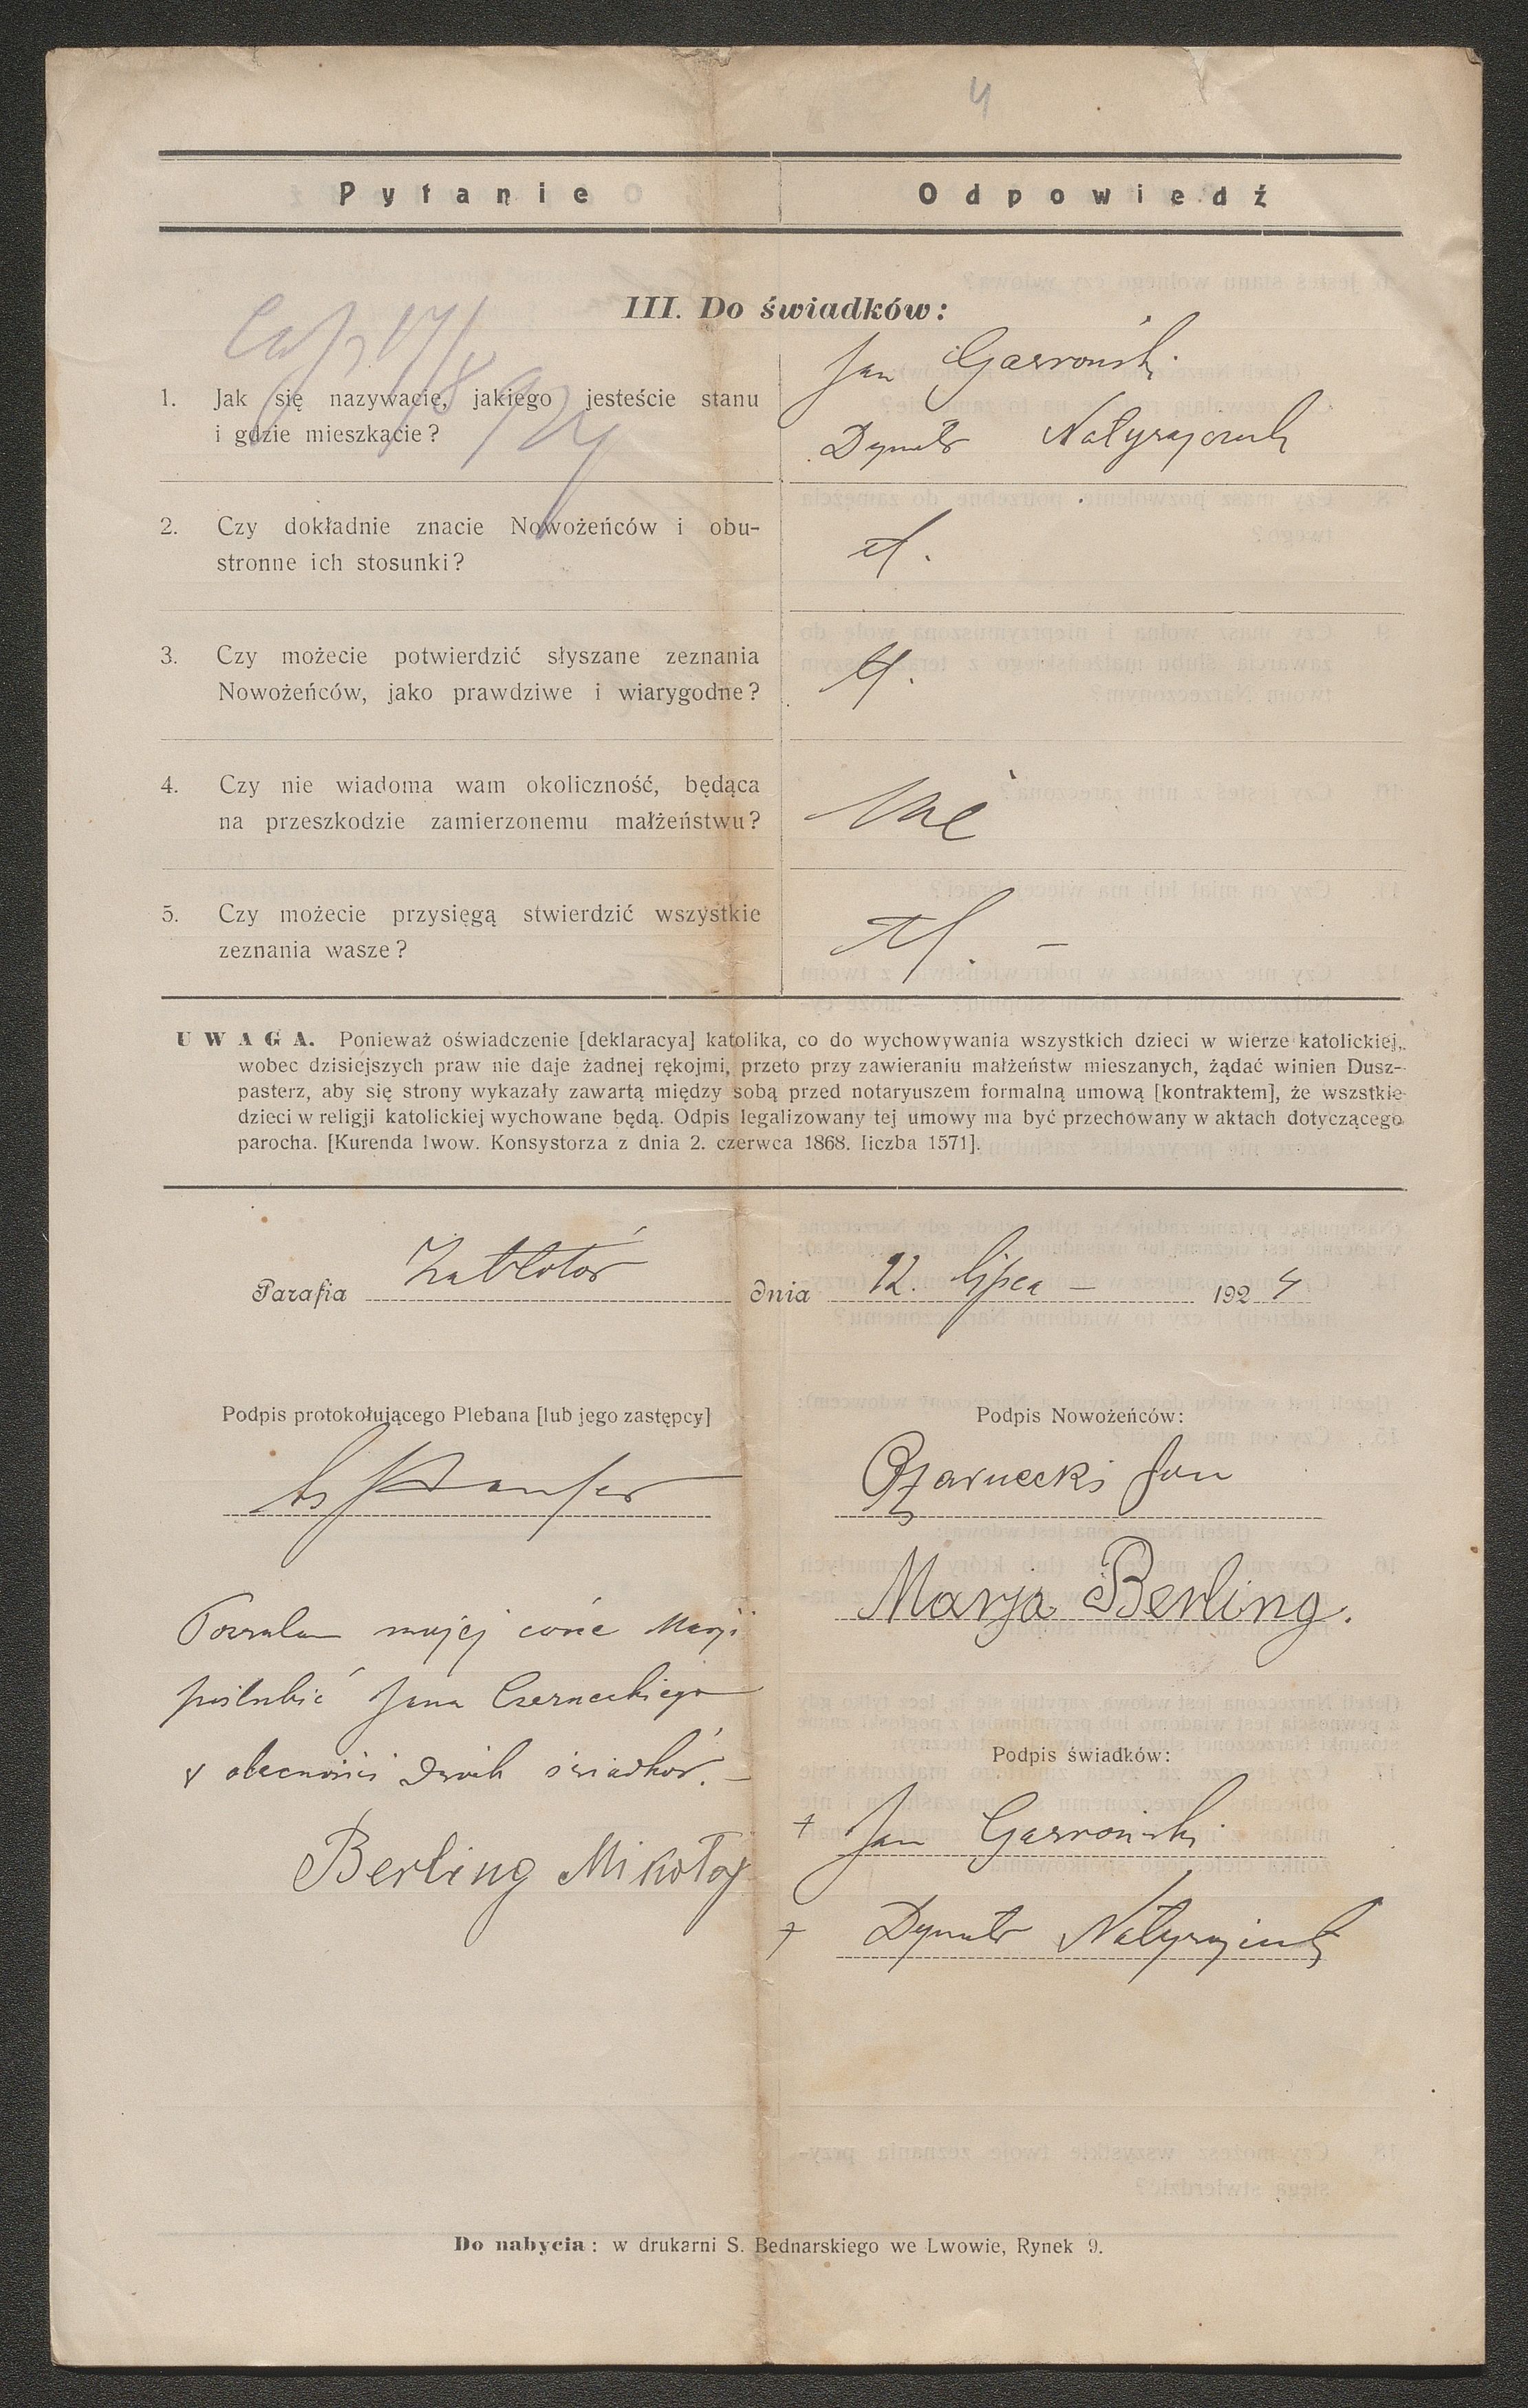 4
Pytanie Odpowiedź
III. Do świadków:
1. Jak się nazywacie, jakiego jesteście stanu
i gdzie mieszkacie?
Jan
Dymitr
2. Czy dokładnie znacie Nowożeńców i obu-
stronne ich stosunki?
3. Czy możecie potwierdzić słyszane zeznania
Nowożeńców, jako prawdziwe i wiarygodne?
4. Czy nie wiadoma wam okoliczność, będąca
na przeszkodzie zamierzonemu małżeństwu?
Nie
5. Czy możecie przysięgą stwierdzić wszystkie
zeznania wasze?
UWAGA. Ponieważ oświadczenie [deklaracya] katolika, co do wychowywania wszystkich dzieci w wierze katolickiej,
wobec dzisiejszych praw nie daje żadnej rękojmi, przeto przy zawieraniu małżeństw mieszanych, żądać winien Dusz-
pasterz, aby się strony wykazały zawartą między sobą przed notaryuszem formalną umową [kontraktem], że wszstkie
dzieci w religji katolickiej wychowane będą. Odpis legalizowany tej umowy ma być przechowany w aktach dotyczącego
parocha. [Kurenda lwow. Konsystorza z dnia 2. czerwca 1868. liczba 1571].
Parafia Zabłotów dnia 12. lipca – 1924
Podpis protokołującego Plebana [lub jego zastępcy]
Podpis Nowożeńców:
Czarnecki Jan
Marja Berling.
Pozwalam mojej córce Marji
poślubić Jana Czarneckiego
w obecności dwóch świadków. –
Berling Mikołaj
Podpis świadków:
+ Jan
+ Dymitr
Do nabycia: w drukarni S. Bednarskiego we Lwowie, Rynek 9.